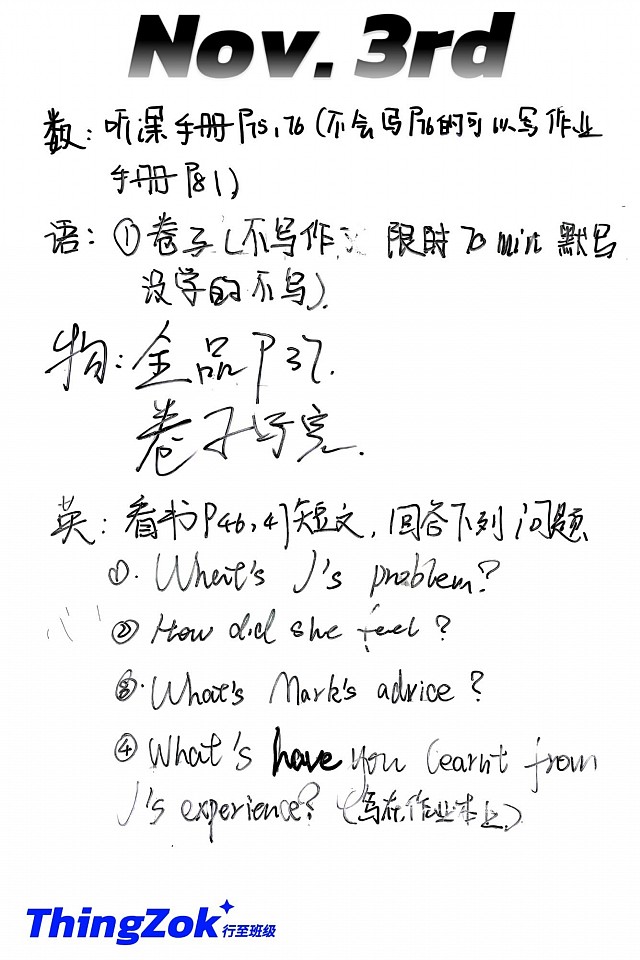 Nov. 3rd
数：听课手册P75,76（不会写P76的可以写作业
手册P81）
语：①卷子（不写作文 限时70min 默写
没学的不写）
物：全品P37.
卷子写完.
英：看书P46,47短文，回答下列问题
①. What's J's problem?
② How did she feel?
③. What's Mark's advice?
④ What's have you learnt from
J's experience?（写在作业本上）
ThingZok 行至班级